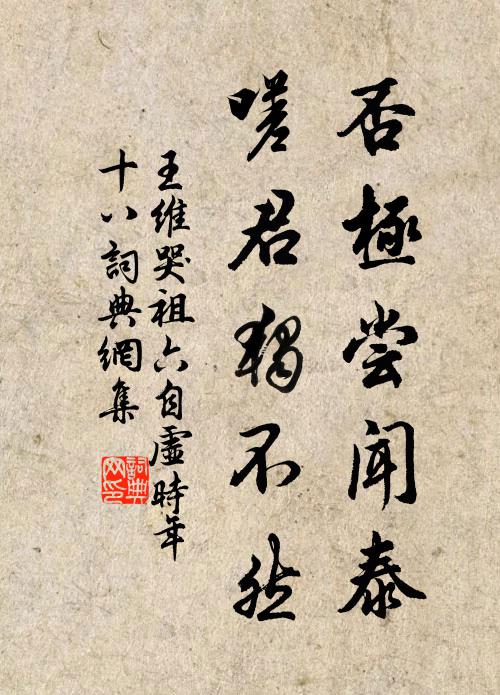 否極尝聞泰
嗟君獨不然
王維哭祖六自虛時年
十八詞典網集
詞典
网印